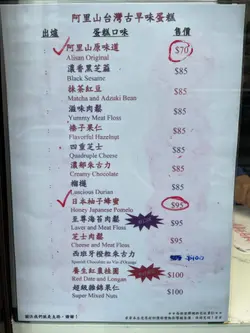 阿里山台灣古早味蛋糕
出爐 蛋糕口味 售價
阿里山原味道 $70
Alisan Original
濃香黑芝蔴 $85
Black Sesame
抹茶紅豆 $85
Matcha and Adzuki Bean
滋味肉鬆 $85
Yummy Meat Floss
榛子果仁 $85
Flavorful Hazelnut
四重芝士 $85
Quadruple Cheese
濃郁朱古力 $85
Creamy Chocolate
榴槤 $85
Luscious Durian
日本柚子蜂蜜 $95
Honey Japanese Pomelo
至尊海苔肉鬆 $95
Laver and Meat Floss
芝士肉鬆 $95
Cheese and Meat Floss
西班牙橙乾朱古力
Spanish Chocolate au Vin d'Orange
養生紅棗桂圓 $100
Red Date and Longan
超級雜錦果仁 $100
Super Mixed Nuts